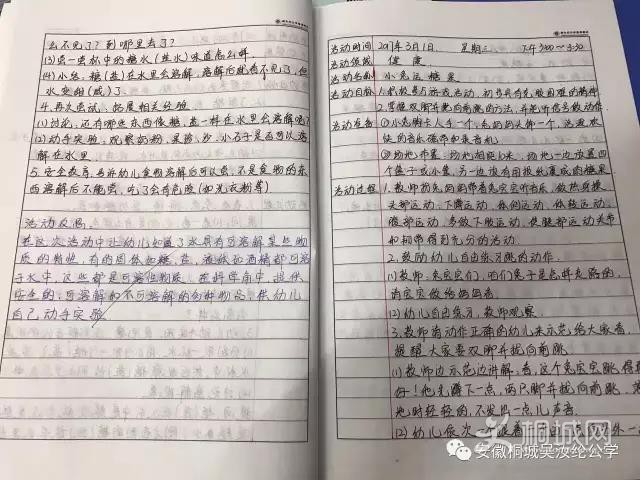 么不见了？到哪里去了？
(3)尝一尝杯中的糖水(盐水)味道怎么样。
(4)小结：糖(盐)在水里会溶解，溶解后就看不见了，但
水变甜(咸)了。
4.再次尝试，拓展相关经验
(1)讨论：还有哪些东西像糖、盐一样在水里会溶解呢？
(2)动手实验，观察奶粉、果珍、沙、小石子是否可以溶
解在水里。
5.安全教育：告诉幼儿食物溶解后可以尝，不是食物的东
西溶解后不能尝，吃了会有危险(如洗衣粉等)
活动反思：
在这次活动中让幼儿知道了水具有可溶解某些物
质的特性，有的固体如糖、盐、液体如酒精都可溶
于水中，这些都是可溶性物质。在科学角中，提供
安全的、可溶解和不可溶解的各种物品，供幼儿
自己动手实验
活动时间 2017年3月1日 星期三 下午3:00—3:30
活动领域 健康
活动名称 小兔运糖果
活动目标 1.积极参与游戏活动，初步具有克服困难的精神
2.掌握双脚并拢向前跳的方法，并能听信号做动作.
活动准备 ①小兔胸卡人手一个，兔妈妈头饰一个，活泼欢
快的音乐磁带和录音机
②场地布置：场地相距10米，场地一边放置四
个盘子或小筐，另一边放有用报纸裹成的糖果
活动过程 1.教师扮兔妈妈带着兔宝宝听音乐，做热身操：
头部运动、下蹲运动、体侧运动、体转运动、
腹部运动，多做下肢运动，使腿部运动关节
和韧带得到充分的活动
2.鼓励幼儿自由练习跳的动作.
(1)教师：兔宝宝们，咱们兔子是怎样走路的，
请宝宝做给妈妈看.
(2)幼儿自由练习，教师观察.
3.教师请动作正确的幼儿来示范给大家看，
提醒大家要双脚并拢向前跳
(1)教师边示范边讲解：看，这个兔宝宝跳得真
好！他先蹲下一点，两只脚并拢向前跳，落
地时轻轻的，不发出一点儿声音.
(2)幼儿依次一个跟着
桐城网
安徽桐城吴汝纶公学